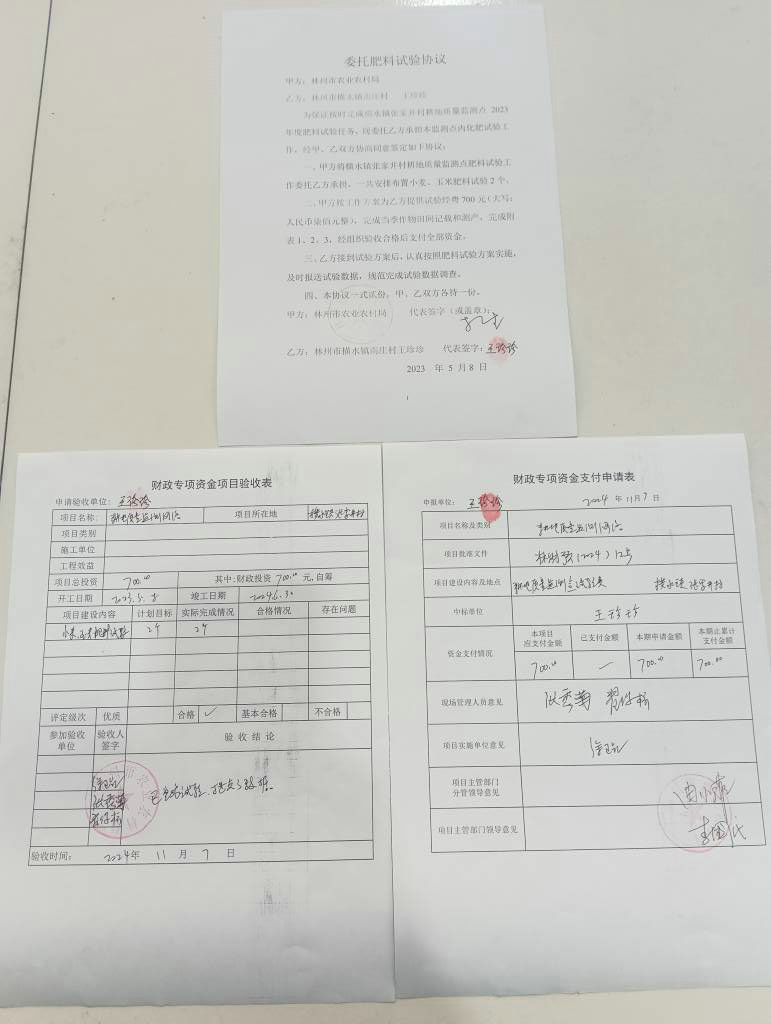 委托肥料试验协议
甲方：林州市农业农村局
乙方：林州市横水镇南庄村 王珍珍
为保证按时完成横水镇张家井村耕地质量监测点 2023
年度肥料试验任务，现委托乙方承担本监测点内化肥试验工
作。经甲、乙双方协商同意签定如下协议：
一、甲方将横水镇张家井村耕地质量监测点肥料试验工
作委托乙方承担，一共安排布置小麦、玉米肥料试验 2 个。
二、甲方按工作方案为乙方提供试验经费 700 元（大写：
人民币柒佰元整），完成当季作物田间记载和测产，完成附
表 1、2、3，经组织验收合格后支付全部资金。
三、乙方接到试验方案后，认真按照肥料试验方案实施，
及时报送试验数据，规范完成试验数据调查。
四、本协议一式贰份，甲、乙双方各持一份。
甲方：林州市农业农村局 代表签字（或盖章）：
乙方：林州市横水镇南庄村王珍珍 代表签字：王珍珍
2023 年 5 月 8 日
1
财政专项资金项目验收表
申请验收单位：王珍珍
项目名称： 耕地质量监测网络 项目所在地 横水镇张家井村
项目类别
施工单位
工程效益
项目总投资 700.00 其中:财政投资 700.00 元,自筹
开工日期 2023.5.8 竣工日期 2024.6.30
项目建设内容 计划目标 实际完成情况 合格情况 存在问题
小麦、玉米肥料试验 2个 2个
评定级次 优质 合格 ✓ 基本合格 不合格
参加验收单位 验收人签字 验收结论
已完成试验，
验收时间： 2024年 11 月 7 日
财政专项资金支付申请表
申报单位： 王珍珍 2024 年 11月 7 日
项目名称及类别 耕地质量监测网络
项目批准文件 林财预（2024）12号
项目建设内容及地点 耕地质量监测点试验 横水镇张家井村
中标单位 王珍珍
资金支付情况 本项目应支付金额 已支付金额 本期申请金额 本期止累计支付金额
700.00 — 700.00 700.00
现场管理人员意见
项目实施单位意见
项目主管部门分管领导意见
项目主管部门领导意见